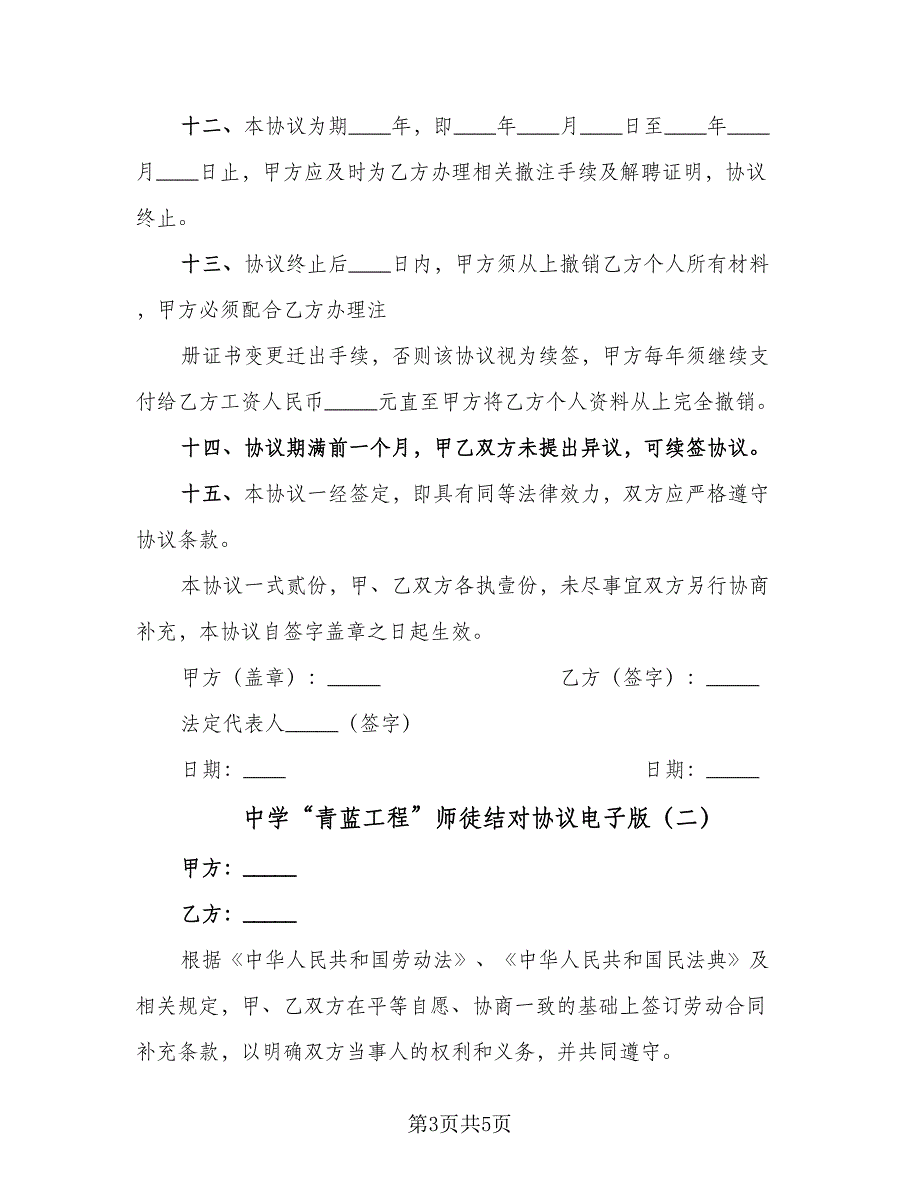 十二、本协议为期____年，即____年____月____日至____年____
月____日止，甲方应及时为乙方办理相关撤注手续及解聘证明，协议
终止。
十三、协议终止后____日内，甲方须从上撤销乙方个人所有材料
，甲方必须配合乙方办理注
册证书变更迁出手续，否则该协议视为续签，甲方每年须继续支
付给乙方工资人民币_____元直至甲方将乙方个人资料从上完全撤销。
十四、协议期满前一个月，甲乙双方未提出异议，可续签协议。
十五、本协议一经签定，即具有同等法律效力，双方应严格遵守
协议条款。
本协议一式贰份，甲、乙双方各执壹份，未尽事宜双方另行协商
补充，本协议自签字盖章之日起生效。
甲方（盖章）：_____ 乙方（签字）：_____
法定代表人_____（签字）
日期：____ 日期：_____
中学“青蓝工程”师徒结对协议电子版（二）
甲方：_____
乙方：_____
根据《中华人民共和国劳动法》、《中华人民共和国民法典》及
相关规定，甲、乙双方在平等自愿、协商一致的基础上签订劳动合同
补充条款，以明确双方当事人的权利和义务，并共同遵守。
第3页共5页